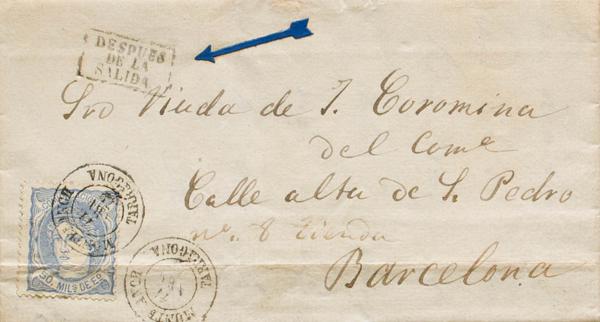 DESPUES
DE LA
SALIDA
Sra Viuda de J. Coromina
del Comº
Calle alta de S. Pedro
nº. 8 tienda
Barcelona
TARRAGONA
50. MILS. DE E
TARRAGONA